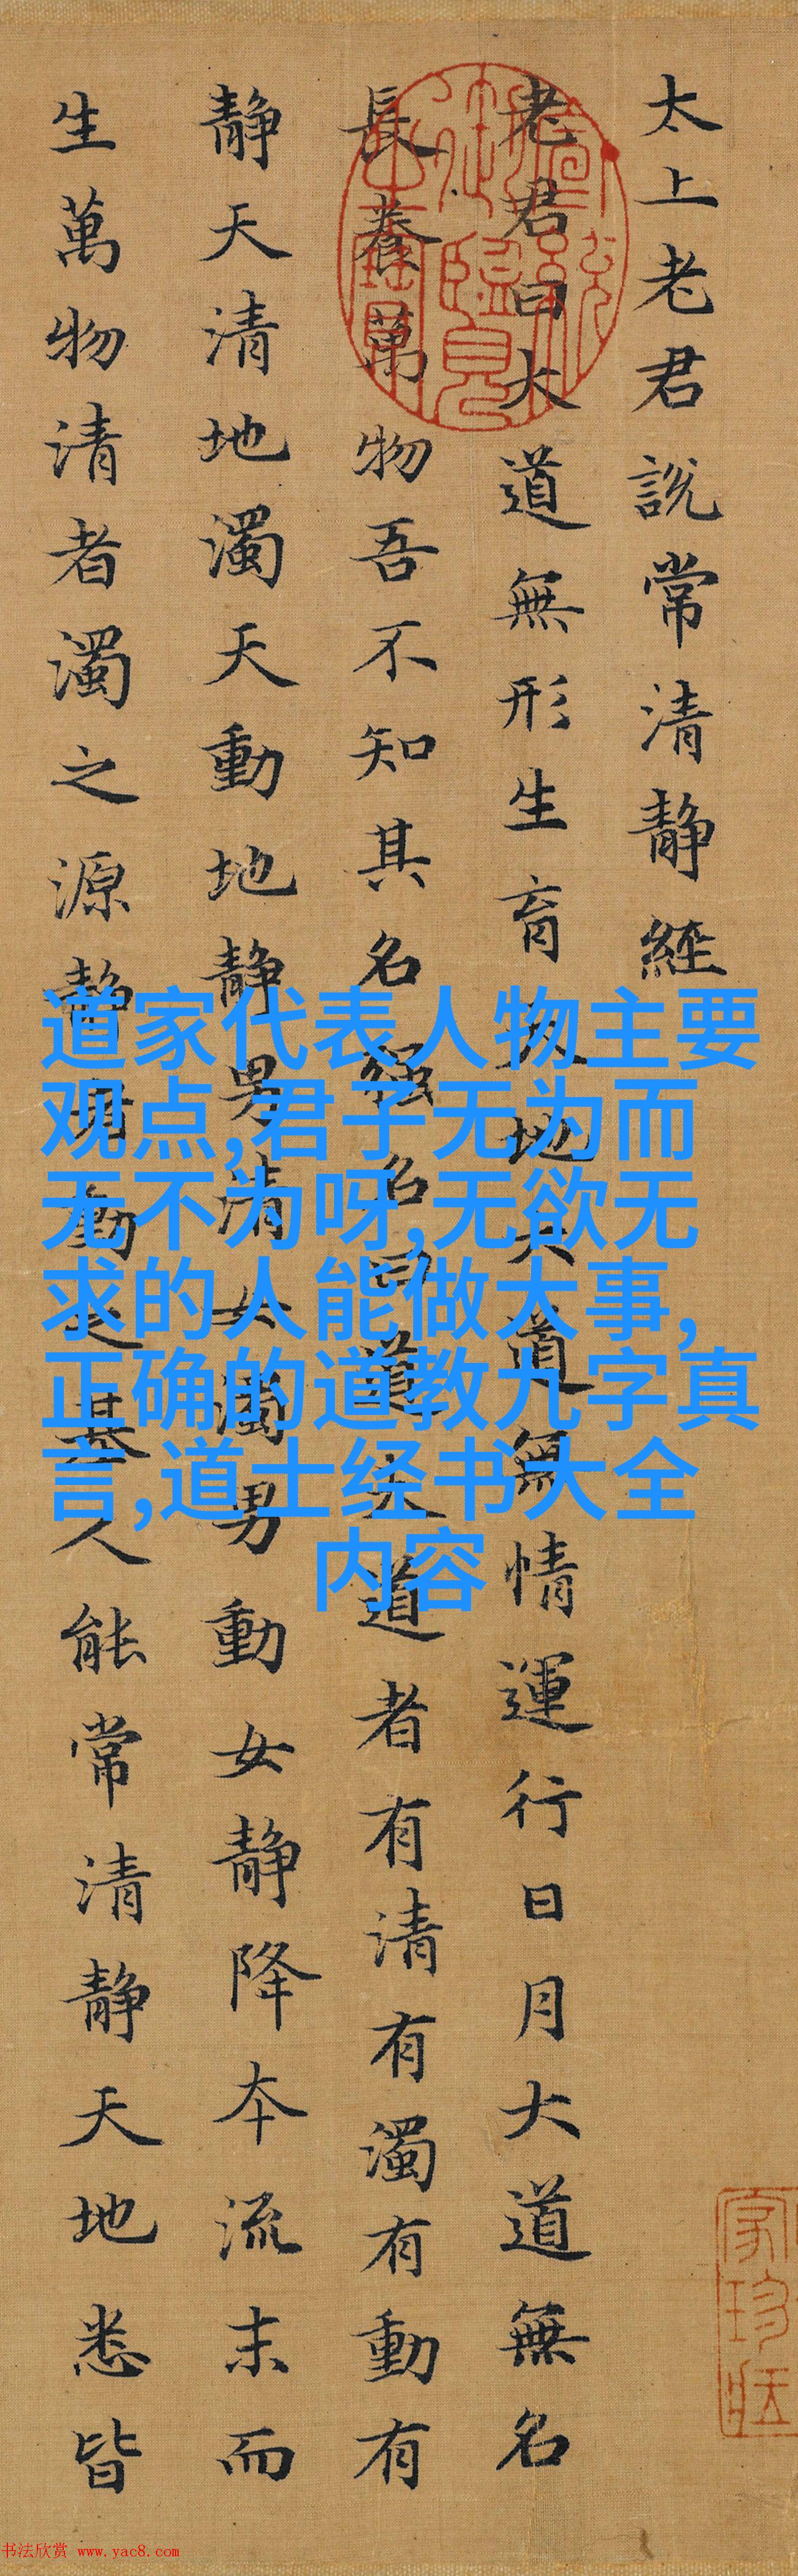 太上老君說常清靜經
老君曰大道無形生育天地大道無情運行日月大道無名
長養萬物吾不知其名强名曰道夫道者有清有濁有動有
靜天清地濁天動地靜男清女濁男動女靜降本流末而
生萬物清者濁之源靜者動之基人能常清靜天地悉皆
道家代表人物主要
观点,君子无为而
无不为呀,无欲无
求的人能做大事,
正确的道教九字真
言,道士经书大全
内容
书法欣赏 www.yac8.com